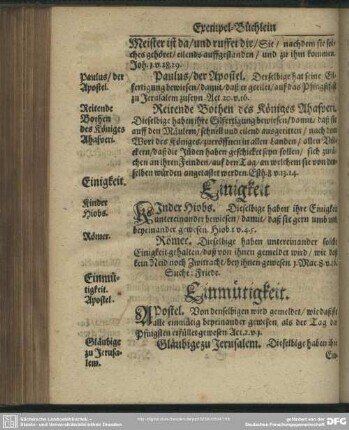 Exempel-Büchlein
Meister ist da/und ruffet dir/ Sie/ nachdem sie sol-
ches gehöret/ eilends auffgestanden/ und zu ihm kommen
Joh. 11. v. 28. 29.
Paulus/ der Apostel.
Paulus/ der Apostel. Derselbige hat seine Eil-
fertigung bewiesen/damit/ daß er geeilet/ auf das Pfingstfest
zu Jerusalem zuseyn Act. 20. v. 16.
Reitende Bothen des Königes Ahasveri.
Reitende Bothen des Königes Ahasveri.
Dieselbige haben ihre Eilfertigung bewiesen/damit/ daß sie
auff den Mäulern/ schnell und eilend ausgeritten/ nach dem
Wort des Königes/ zueröffnen in allen Landen/ allen Völ-
ckern/daß die Jüden haben geschickt seyn sollen/ sich zurä-
chen an ihren Feinden/ auf den Tag/ an welchem sie von den-
selben würden angetastet werden. Esth. 8. v. 13. 14.
Einigkeit.
Einigkeit
Kinder Hiobs.
KInder Hiobs. Dieselbige haben ihre Einigkeit
untereinander bewiesen/damit/ daß sie gern und
beyeinander gewesen. Hiob. 1. v. 4. 5.
Römer.
Römer. Dieselbige haben untereinander solche
Einigkeit gehalten/ daß von ihnen gemeldet wird/ wie daß
kein Neid noch Zwytracht/ bey ihnen gewesen 1. Mac. 8. v. 16.
Suche: Friede.
Einmütigkeit.
Einmütigkeit.
Apostel.
APostel. Von denselbigen wird gemeldet/ wie daß sie
alle einmütig beyeinander gewesen, als der Tag der
Pfingsten erfüllet gewesen Act. 2. v. 1.
Gläubige zu Jerusalem.
Gläubige zu Jerusalem. Dieselbige haben ihre
Ein-
Sächsische Landesbibliothek -
Staats- und Universitätsbibliothek Dresden
gefördert von der
Deutschen Forschungsgemeinschaft